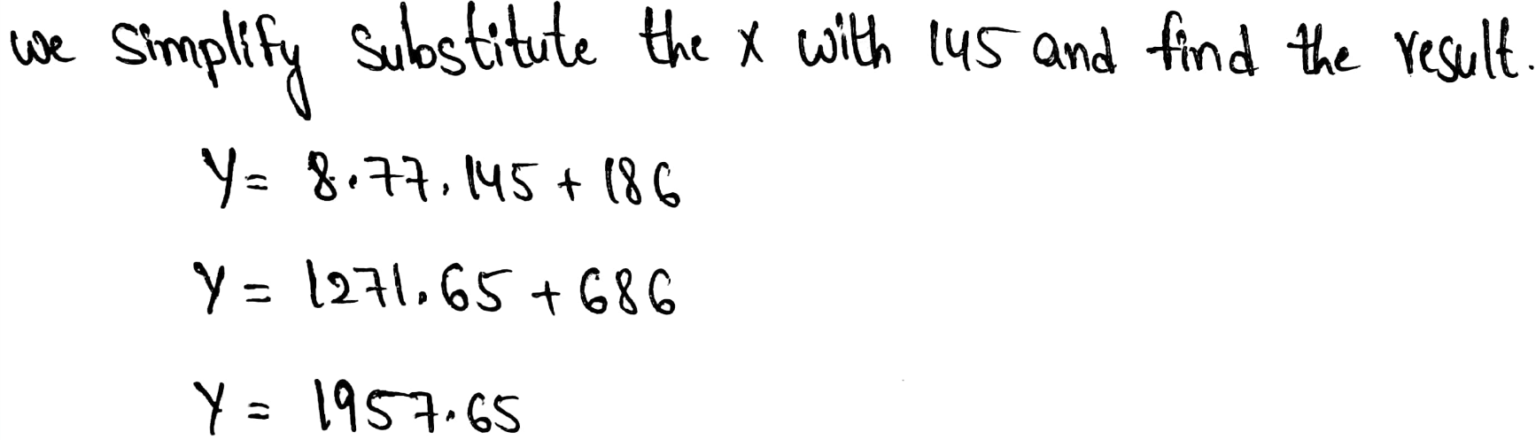 we simplify substitute the x with 145 and find the result.
Y = 8.77.145 + 186
Y = 1271.65 + 686
Y = 1957.65